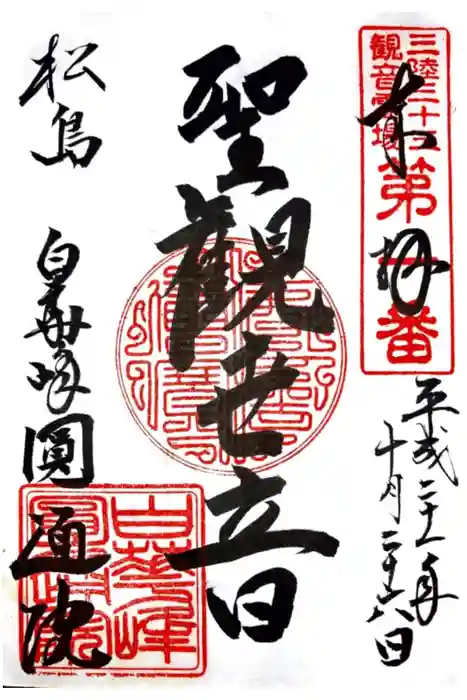 三陸三十三
観音霊場
第一番
奉拝
平成二十一年
十月二十六日
聖観世音
松島
白華峰圓通院
白華峰
圓通院